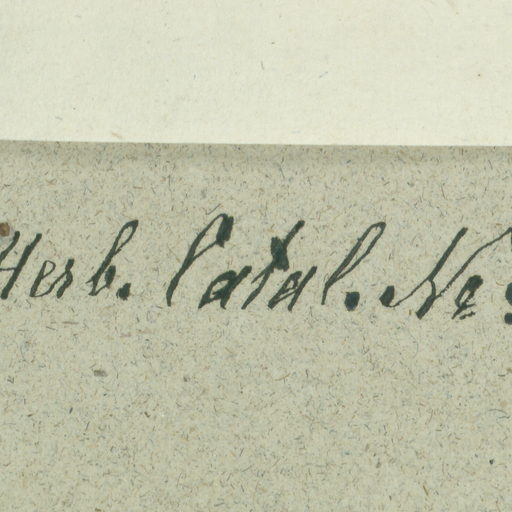 Herb. Catal. No